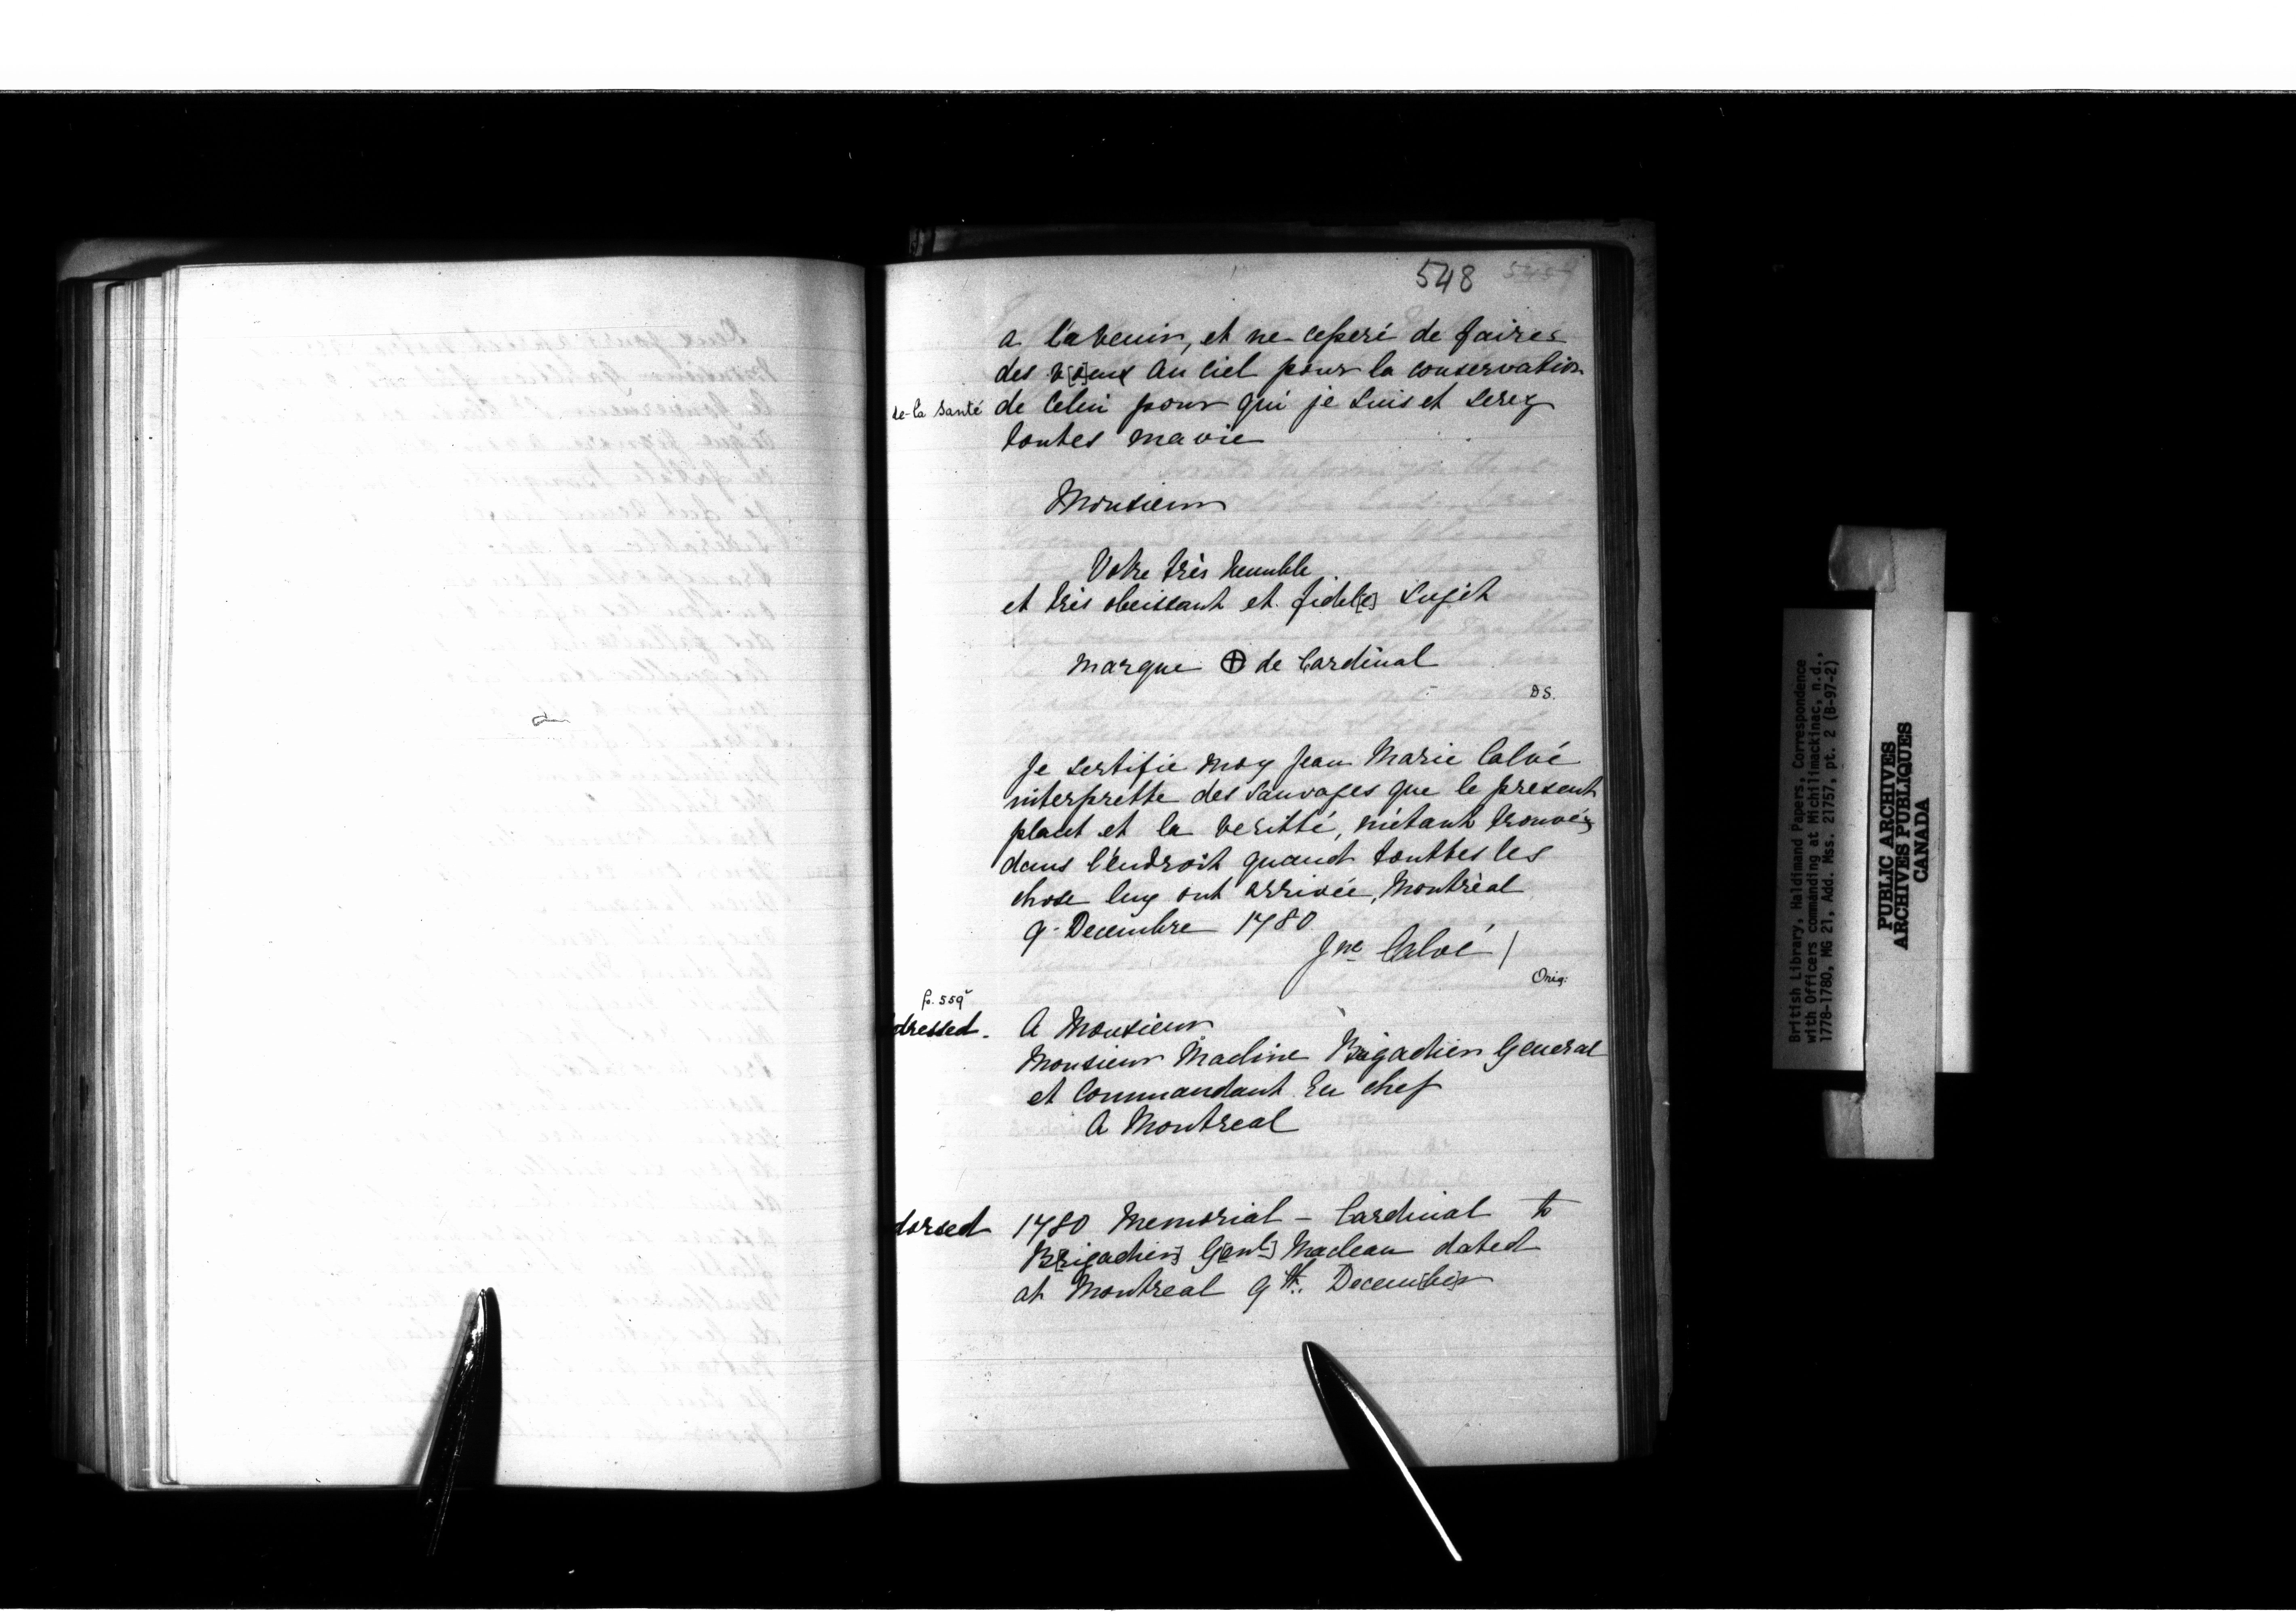 548
a l'avenir, et ne cesseré de faires
des v[o]eux au Ciel pour la conservation
de la santé de Celui pour qui je suis et serez
toutes ma vie
Monsieur
Votre très humble
et très obeissant et fidel[e] sujèt
marque ⊕ de Cardinal
DS.
Je sertifie moy Jean Marie Calvé
interprette des sauvages que le present
plaet et la veritté, m'étant trouvéz
dans l'endroit quand touttes les
chose luy ont arrivée, Montrèal
9. Decembre 1780
Jne Calvé
Orig:
fo. 559v
dressed. A Monsieur
Monsieur Macline Brigadier General
et Commandant En chef
A Montreal
dorsed 1780 Memorial – Cardinal to
B[rigadier] G[enl] Maclean dated
at Montreal 9th. Decem[be]r
British Library, Haldimand Papers, Correspondence
with Officers commanding at Michilimackinac, n.d.,
1778-1780, MG 21, Add. Mss. 21757, pt. 2 (B-97-2)
PUBLIC ARCHIVES
ARCHIVES PUBLIQUES
CANADA